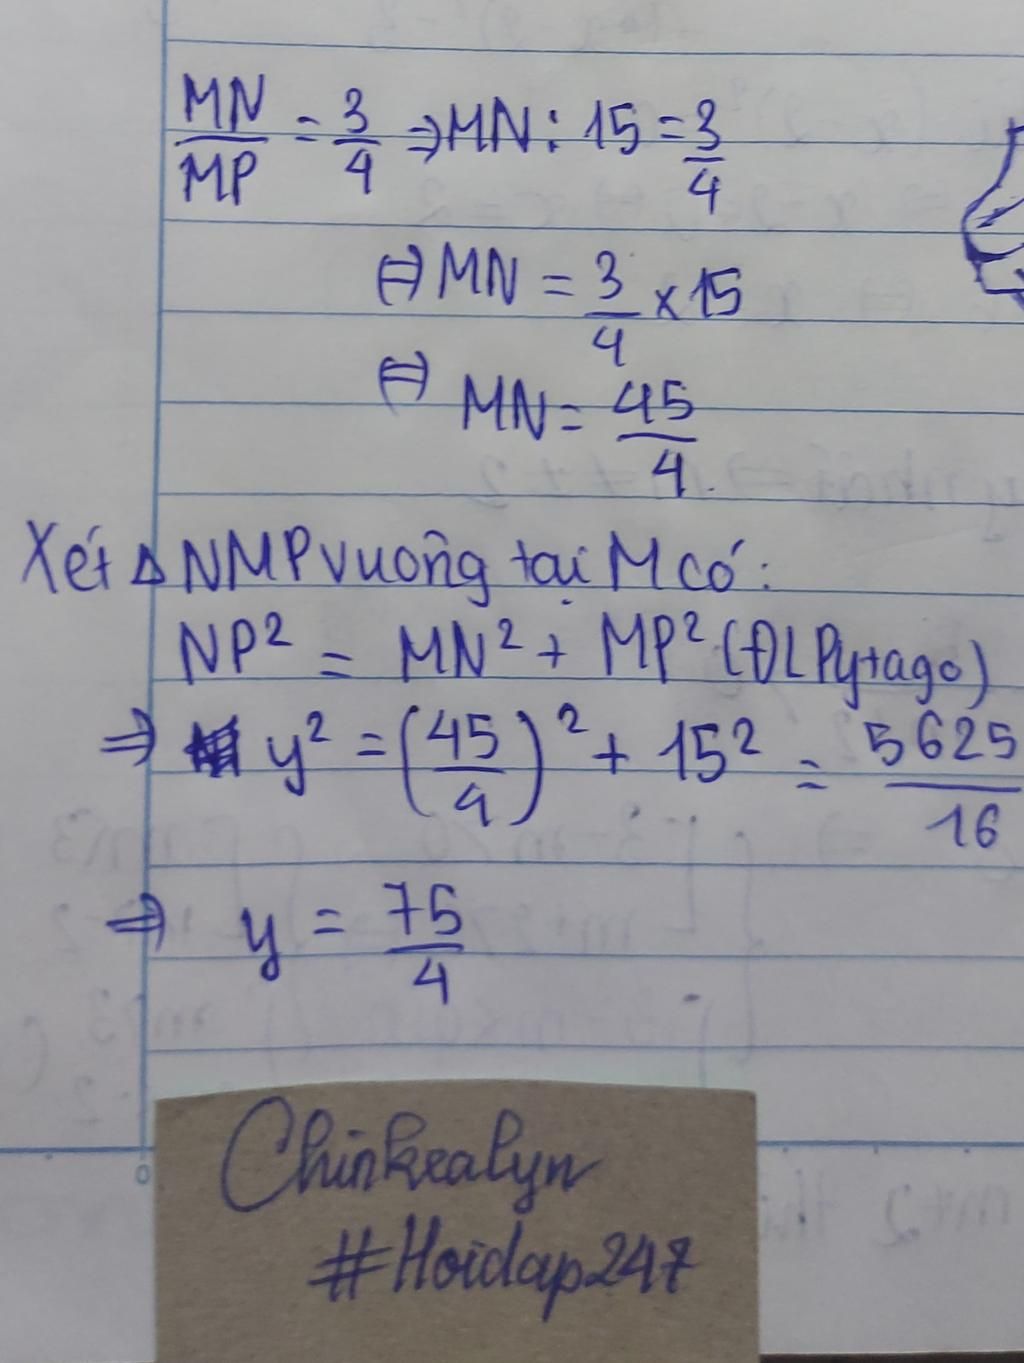 MN/MP = 3/4 ⇒ MN : 15 = 3/4
⇔ MN = 3/4 x 15
⇔ MN = 45/4.
Xét Δ NMP vuông tại M có:
NP² = MN² + MP² (ĐL Pytago)
⇒ y² = (45/4)² + 15² = 5625/16
⇒ y = 75/4
Chinkealyn
#Hoidap247